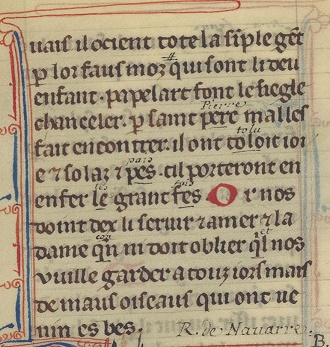 uais il ocient tote la sïple gēt
p lor faus moz qui sont li deu
enfant. papelart font le siegle
Pierre
chanceler. p saint pere mal les
tolu
fait encontrer. il ont toloit ioi
pais
e ⁊ solaz ⁊ pes. cil porteront en
les fais
enfer le grant fes. Or nos
doint dex li seruir ⁊ amer ⁊ la
dame qn̄ ni doit oblier ql̄ nos
vuille garder a touz iors mais
de maus oiseaus qui ont ue
nin es bes. R. de Navarre.
B.